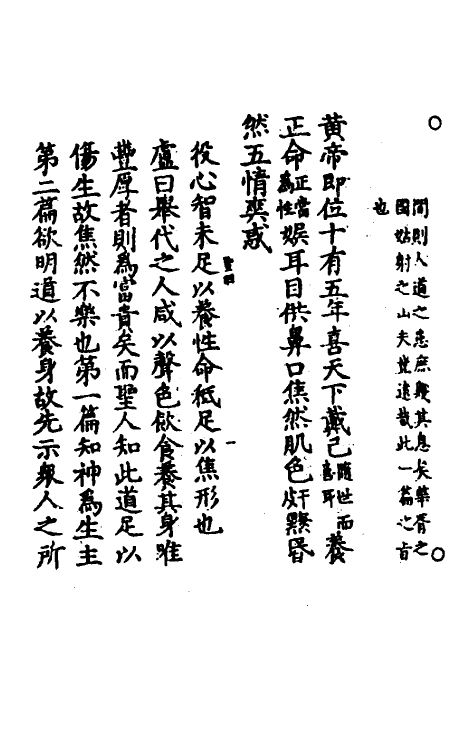 間則人道之患庶幾其息矣華胥之
國姑射之山夫豈遠哉此一篇之旨
也
黃帝即位十有五年喜天下戴己隨世喜耳而養
正命正當爲性娛耳目供鼻口焦然肌色皯黣昏
然五情爽惑
役心智未足以養性命秖足以焦形也
盧曰舉代之人咸以聲色飲食養其身唯
豐厚者則爲富貴矣而聖人知此道足以
傷生故焦然不樂也第一篇知神爲生主
第二篇欲明道以養身故先示衆人之所